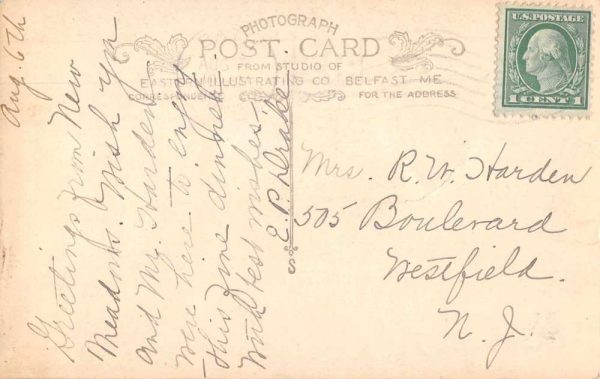 PHOTOGRAPH
POST CARD
FROM STUDIO OF
EASTERN ILLUSTRATING CO BELFAST ME
CORRESPONDENCE
FOR THE ADDRESS
U.S. POSTAGE
1 CENT 1
Aug 6th
Greetings from New
Meadows. Wish you
and Mr. Harden
were here to enjoy
this fine dinner
With best wishes
E. P. Drake
Mrs. R. W. Harden
505 Boulevard
Westfield.
N. J.